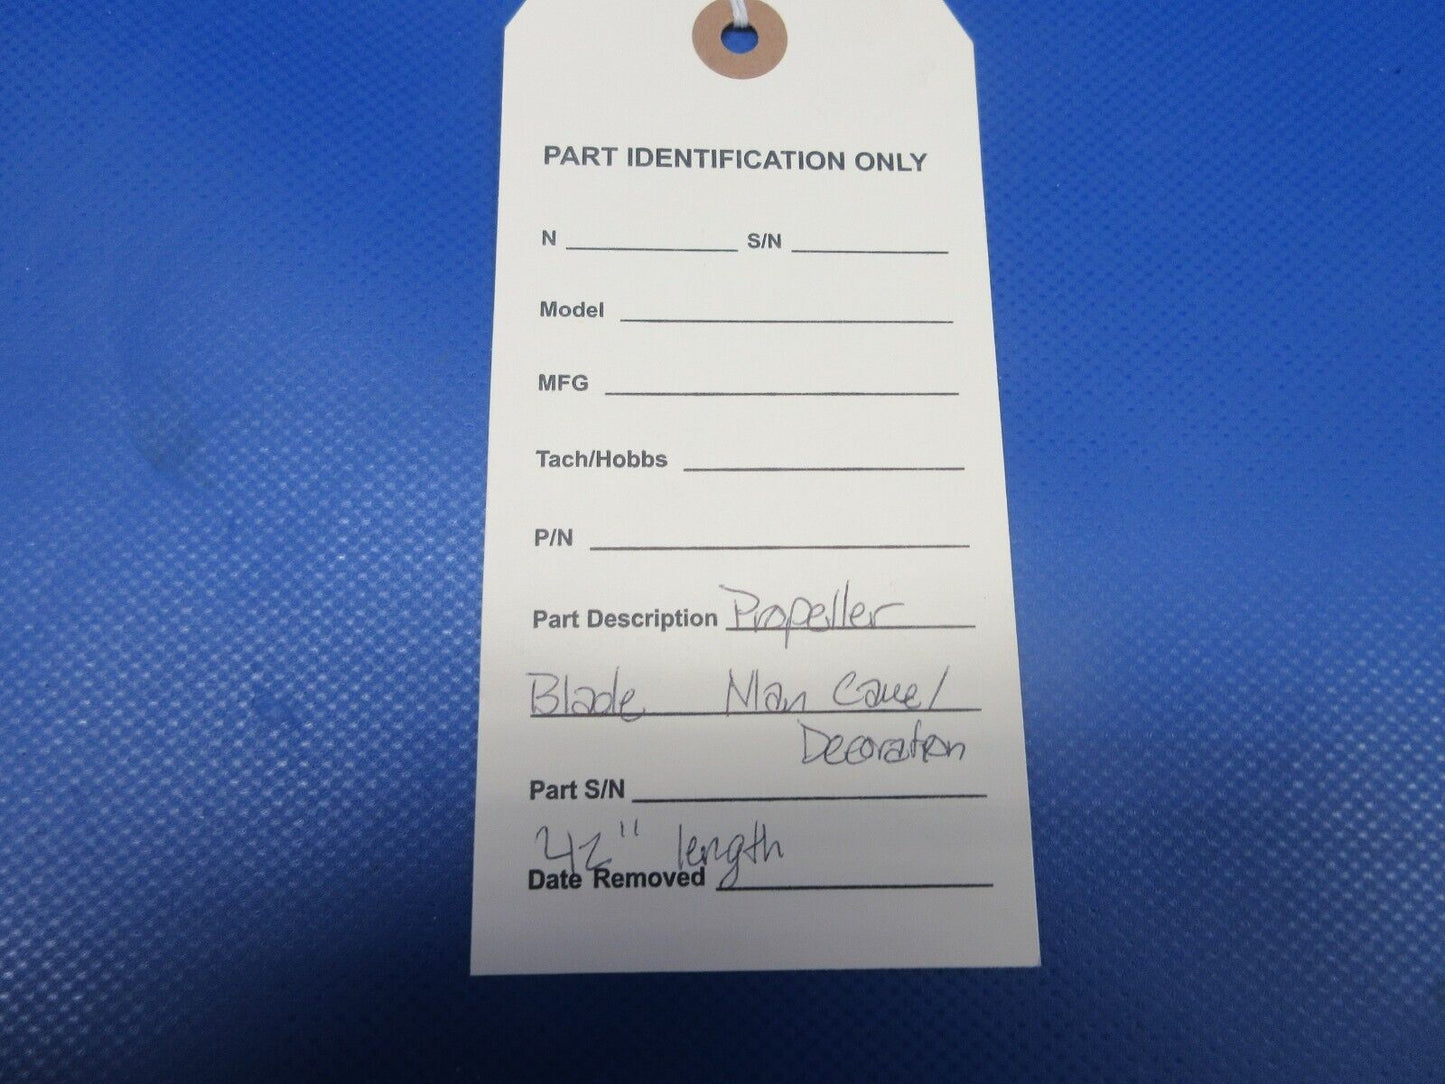 PART IDENTIFICATION ONLY
N S/N
Model
MFG
Tach/Hobbs
P/N
Part Description Propeller
Blade Man Cave/
Decoration
Part S/N
42" length
Date Removed